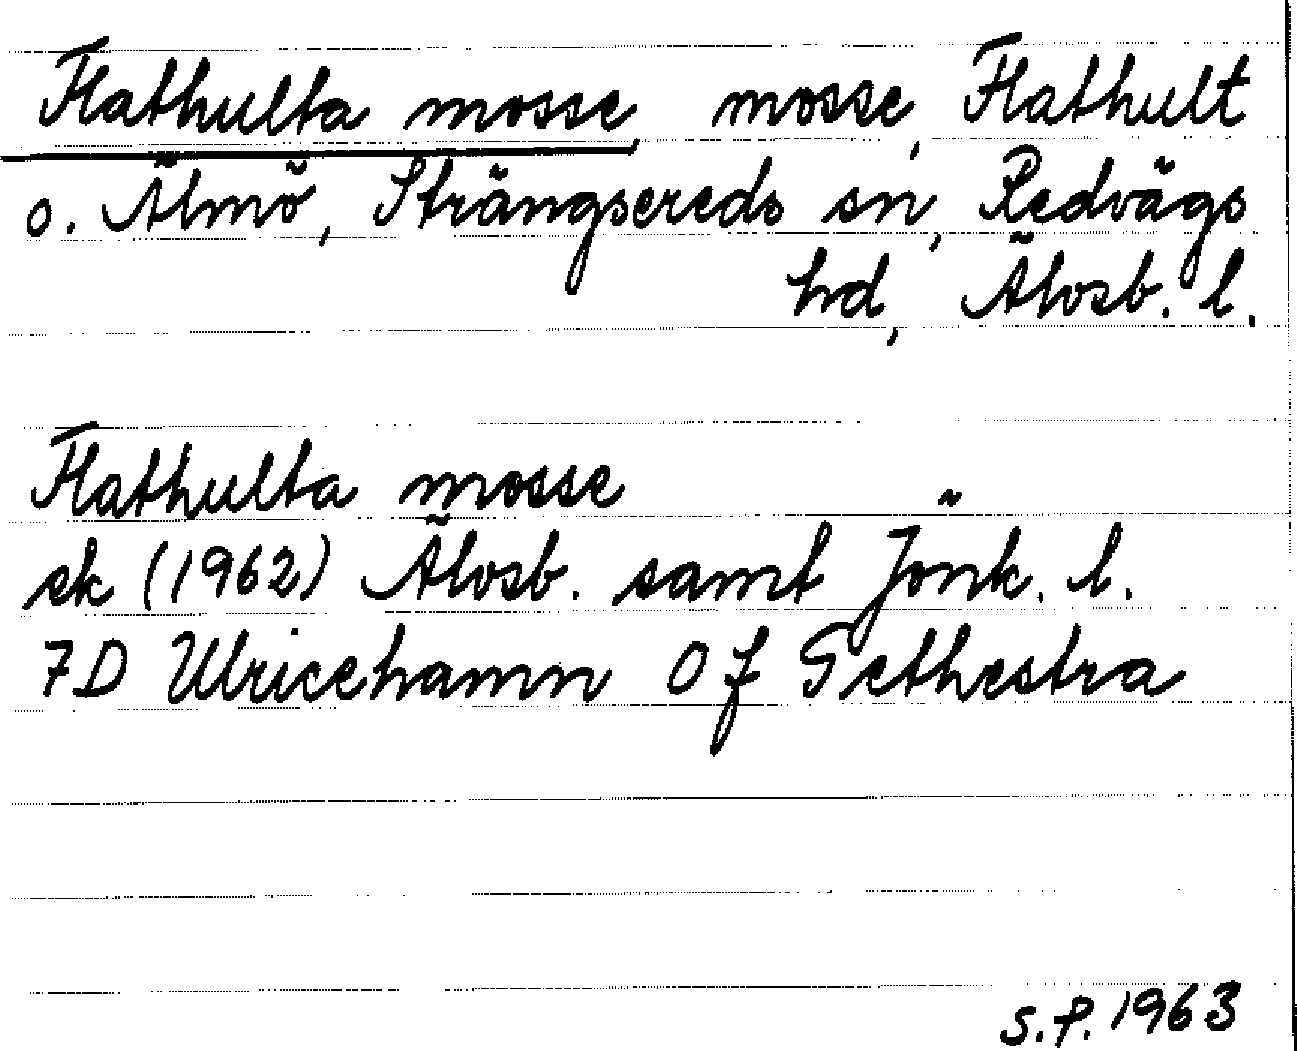 Flathulta mosse, mosse, Flathult
o. Älmö, Strängsereds sn, Redvägs
hd, Älvsb. l.
Flathulta mosse
ek (1962) Älvsb. samt Jönk. l.
7D Ulricehamn 0f Grethestra
S.P. 1963